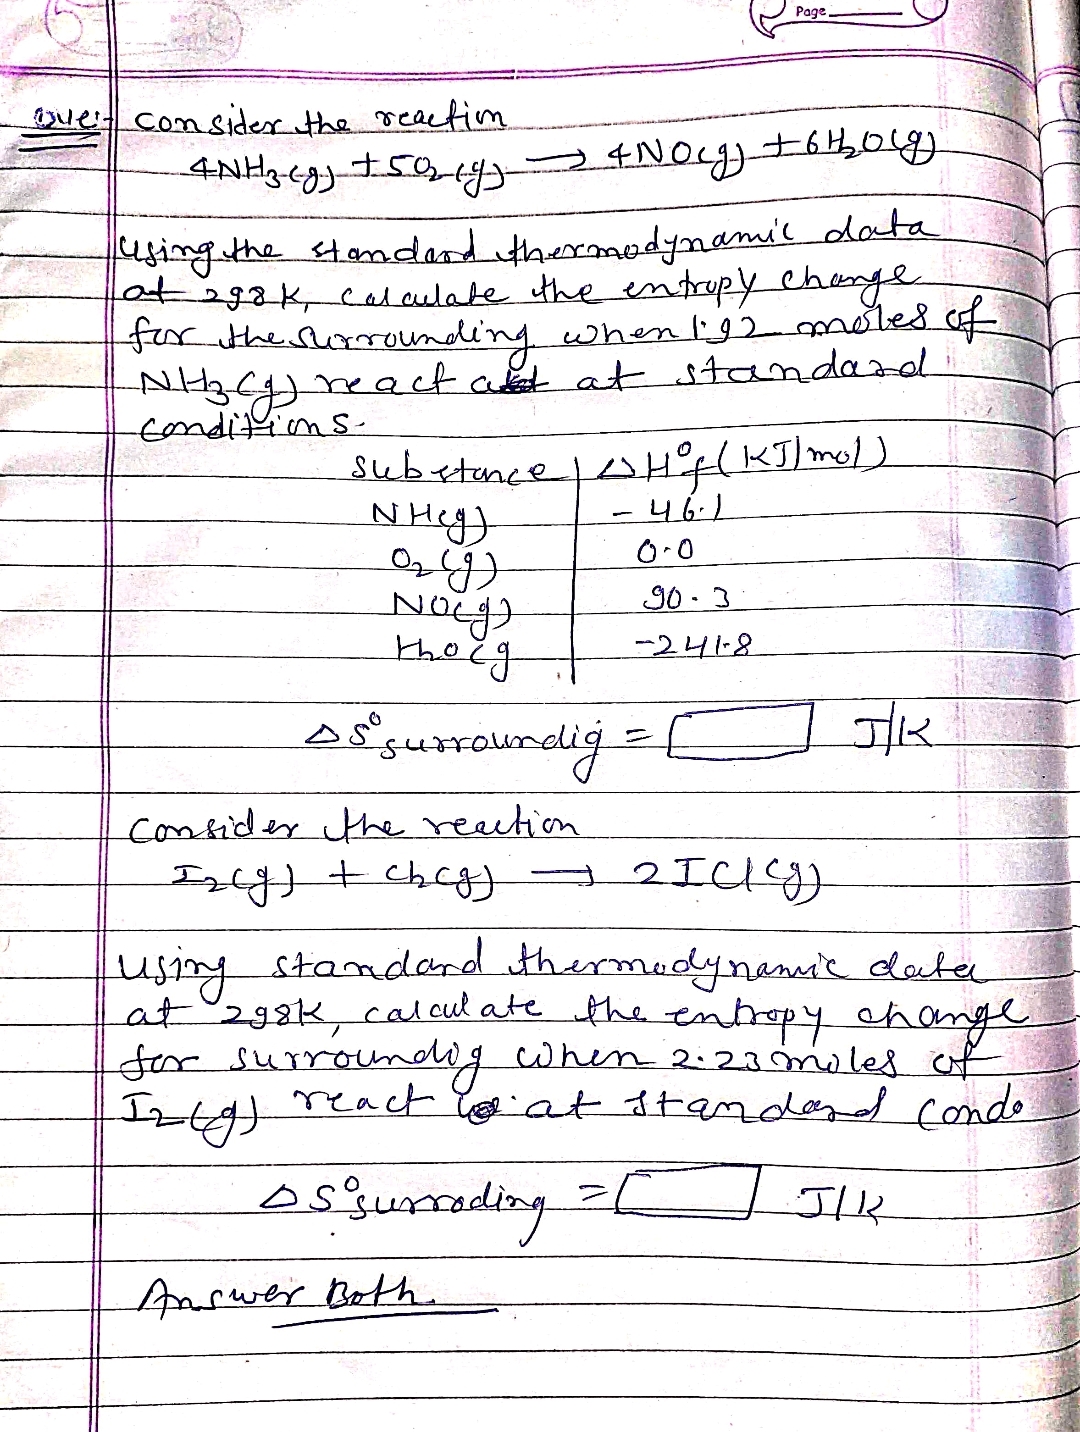 Page
Que:- consider the reaction
4NH3(g) + 5O2(g) → 4NO(g) + 6H2O(g)
Using the standard thermodynamic data
at 298K, calculate the entropy change
for the surrounding when 1.92 moles of
NH3(g) react at standard
conditions.
substance ΔH°f (KJ/mol)
NH(g) -46.1
O2(g) 0.0
NO(g) 90.3
H2O(g -241.8
ΔS°surroundig = J/K
consider the reaction
I2(g) + Cl2(g) → 2ICl(g)
Using standard thermodynamic data
at 298K, calculate the entropy change
for surroundig when 2.23 moles of
I2(g) react at standard condo
ΔS°surroding = J/K
Answer Both.